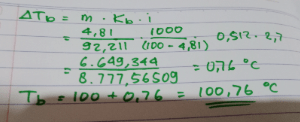 ΔTb = m · Kb · i
= 4,81 / 92,211 · 1000 / (100 - 4,81) · 0,512 · 2,7
= 6.649,344 / 8.777,56509 = 0,76 °C
Tb = 100 + 0,76 = 100,76 °C